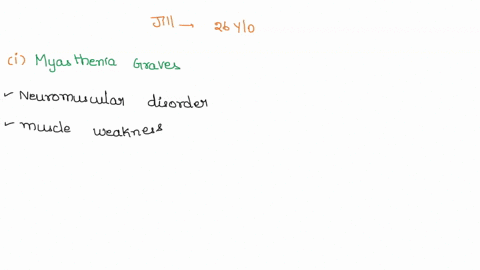 Jill → 26 Y/O
(i) Myasthenia Graves
✓ Neuromuscular disorder
✓ muscle weakness